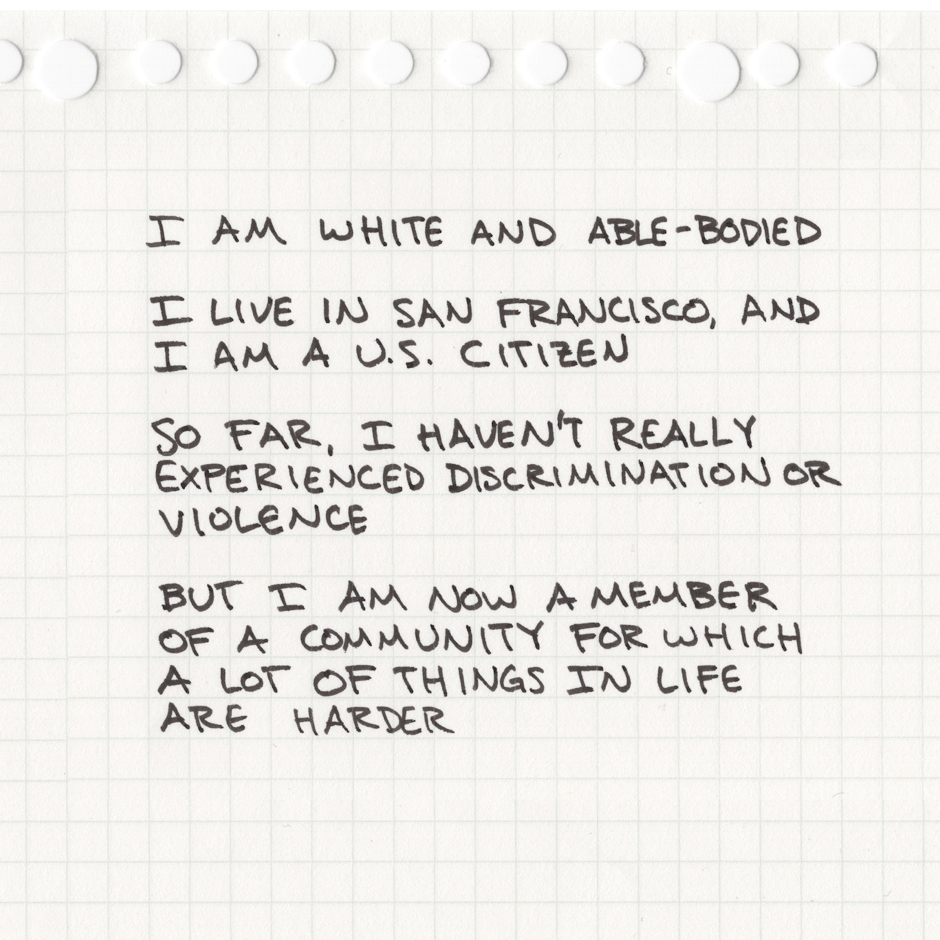 I AM WHITE AND ABLE-BODIED
I LIVE IN SAN FRANCISCO, AND
I AM A U.S. CITIZEN
SO FAR, I HAVEN'T REALLY
EXPERIENCED DISCRIMINATION OR
VIOLENCE
BUT I AM NOW A MEMBER
OF A COMMUNITY FOR WHICH
A LOT OF THINGS IN LIFE
ARE HARDER